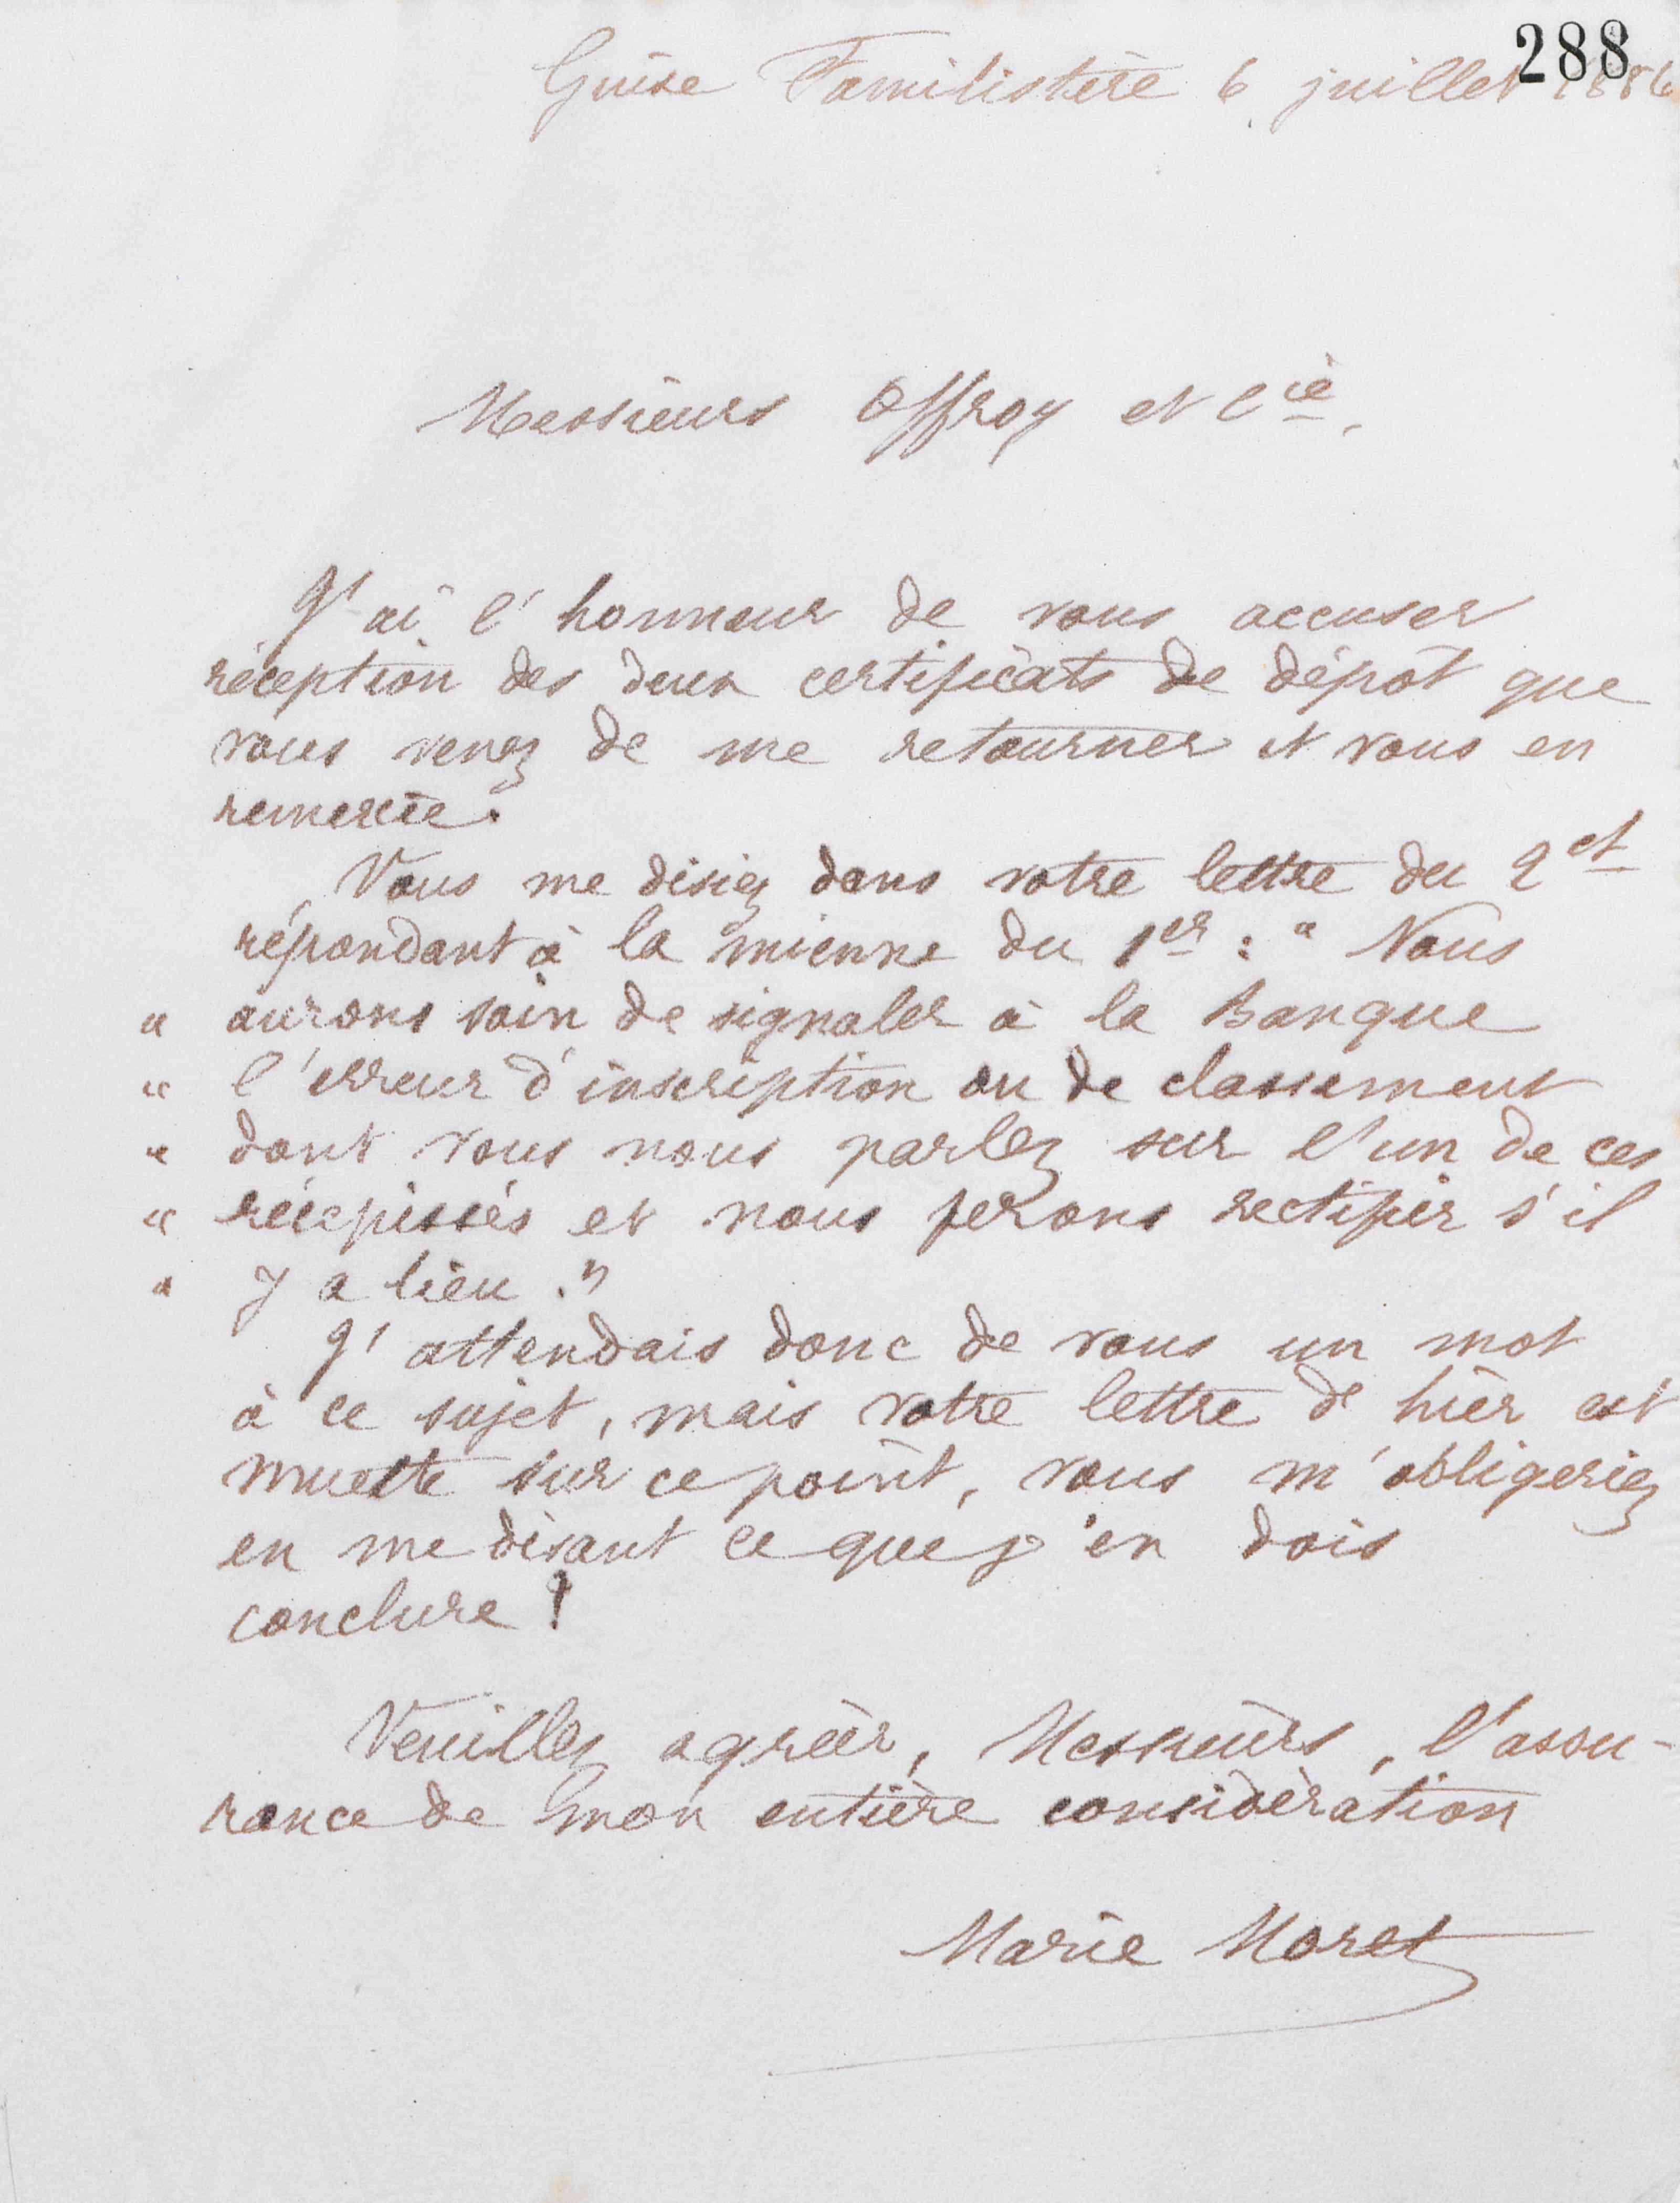 288
Guise Familistère 6 juillet 1886
Messieurs Offroy et Cie,
J'ai l'honneur de vous accuser
réception des deux certificats de dépôt que
vous venez de me retourner et vous en
remercie.
Vous me disiez dans votre lettre du 2 ct
répondant à la mienne du 1er : " Nous
" aurons soin de signaler à la Banque
" l'erreur d'inscription ou de classement
" dont vous nous parlez sur l'un de ces
" récépissés et nous ferons rectifier s'il
" y a lieu. "
J'attendais donc de vous un mot
à ce sujet, mais votre lettre d'hier est
muette sur ce point, vous m'obligeriez
en me disant ce que j'en dois
conclure !
Veuillez agréer, Messieurs, l'assu-
rance de mon entière considération
Marie Moret